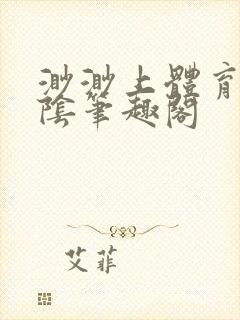 渺渺上體育
陰筆趣閣
艾菲